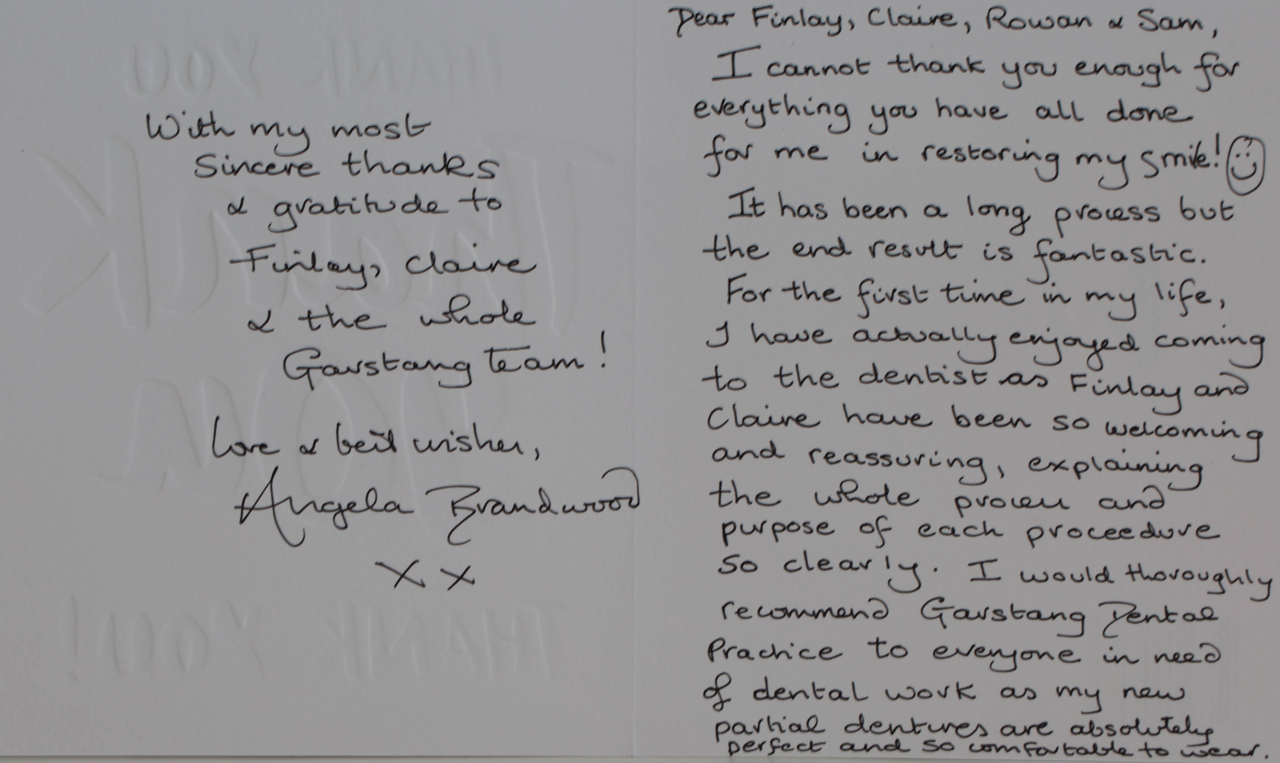 Dear Finlay, Claire, Rowan & Sam,
I cannot thank you enough for
everything you have all done
for me in restoring my smile! ☺
It has been a long process but
the end result is fantastic.
For the first time in my life,
I have actually enjoyed coming
to the dentist as Finlay and
Claire have been so welcoming
and reassuring, explaining
the whole process and
purpose of each proceedure
so clearly. I would thoroughly
recommend Garstang Dental
Practice to everyone in need
of dental work as my new
partial dentures are absolutely
perfect and so comfortable to wear.
With my most
sincere thanks
& gratitude to
Finlay, Claire
& the whole
Garstang Team!
Love & best wishes,
Angela Brandwood
x x
THANK YOU
THANK
YOU
THANK YOU!